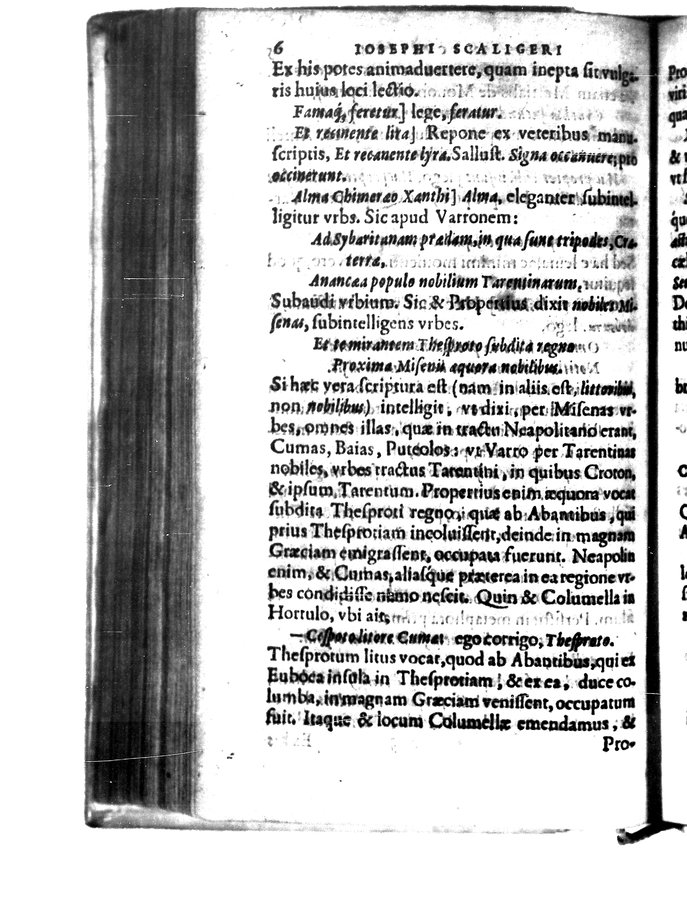 6 IOSEPHI SCALIGERI
Ex his potes animaduertere, quam inepta sit vulga-
ris huius loci lectio.
Famaq́, feretur] lege, feratur.
Et recinente lira] Repone ex veteribus manu-
scriptis, Et recanente lyra. Sallust. Signa occanuere, pro
occinerunt.
Alma Chimerao Xanthi] Alma, eleganter subintel-
ligitur vrbs. Sic apud Varronem:
Ad Sybaritanam prædam, in qua sunt tripodes, Cra-
terræ,
Anancæa populo nobilium Tarentinarum,
Subaudi vrbium. Sic & Propertius dixit nobiles Mi-
senas, subintelligens vrbes.
Et te mirantem Thesproto subdita regno
Proxima Misenis æquora nobilibus.
Si hæc vera scriptura est (nam in aliis est, littoribus,
non nobilibus) intelligit, vt dixi, per Misenas vr-
bes, omnes illas, quæ in tractu Neapolitano erant,
Cumas, Baias, Puteolos: vt Varro per Tarentinas
nobiles, vrbes tractus Tarentini, in quibus Croton,
& ipsum Tarentum. Propertius enim æquora vocat
subdita Thesproti regno, quæ ab Abantibus, qui
prius Thesprotiam incoluissent, deinde in magnam
Græciam emigrassent, occupata fuerunt. Neapolin
enim, & Cumas, aliasque præterea in ea regione vr-
bes condidisse nemo nescit. Quin & Columella in
Hortulo, vbi ait,
— litore Cumae ego corrigo, Thesproto.
Thesprotum litus vocat, quod ab Abantibus, qui ex
Eubœa insula in Thesprotiam, & ex ea, duce co-
lumba, in magnam Græciam venissent, occupatum
fuit. Itaque & locum Columellæ emendamus, &
Pro-